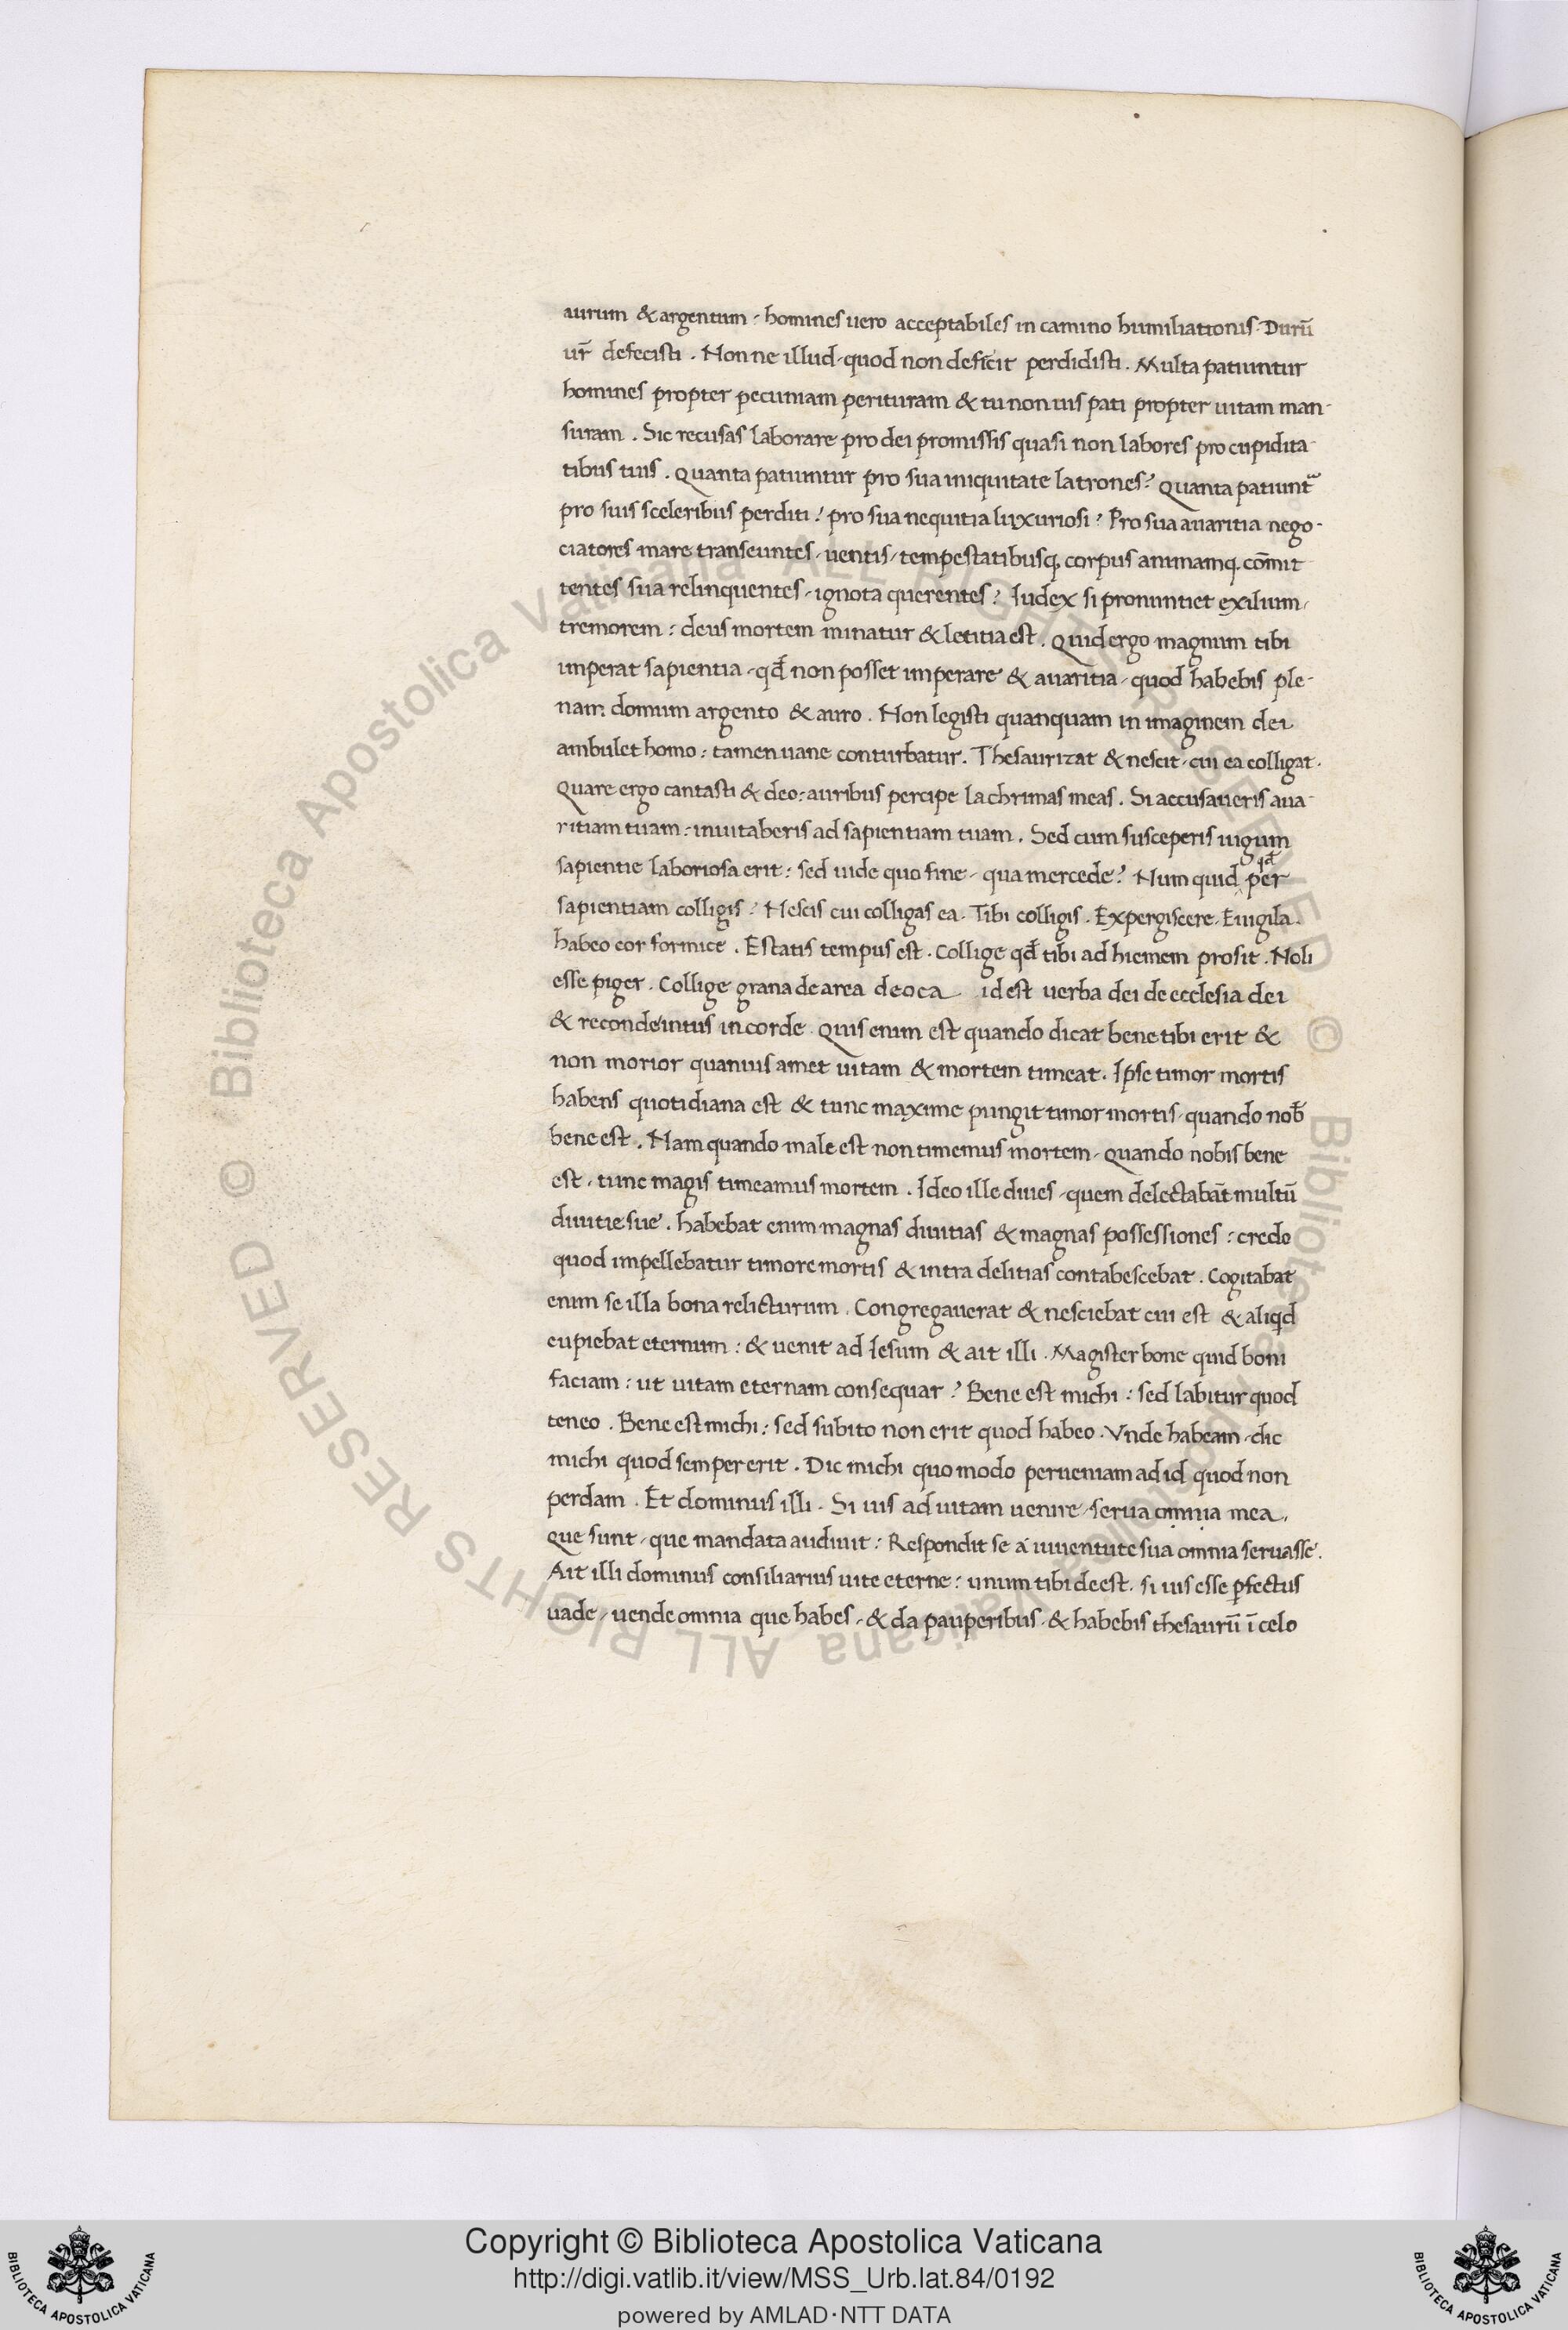 aurum & argentum : homines uero acceptabiles in camino humiliationis . Durū
ur̄ defecisti . Non ne illud , quod non deficit perdidisti . Multa patiuntur
homines propter pecuniam perituram & tu non uis pati propter uitam man-
suram . Sic recusas laborare pro dei promissis quasi non labores pro cupidita-
tibus tuis . Quanta patiuntur pro sua iniquitate latrones ? Quanta patiunt᷑
pro suis sceleribus perditi ? pro sua nequitia luxuriosi ? Pro sua auaritia nego-
ciatores mare transeuntes , uentis , tempestatibusq. corpus animamq. com̄it
tentes sua relinquentes , ignota querentes ? Iudex si pronuntiet exilium ,
tremorem : deus mortem minatur & letitia est . Quid ergo magnum tibi
imperat sapientia , qđ non posset imperare & auaritia , quod habebis ple-
nam domum argento & auro . Non legisti quanquam in imaginem dei
ambulet homo : tamen uane conturbatur . Thesaurizat & nescit , cui ea colligat .
Quare ergo cantasti & deo : auribus percipe lachrimas meas . Si accusaueris aua-
ritiam tuam : inuitaberis ad sapientiam tuam . Sed cum susceperis iugum
sapientie laboriosa erit : sed uide quo fine , qua mercede ? Num quid qđ per
sapientiam colligis ? Nescis cui colligas ea . Tibi colligis . Expergiscere . Euigila .
habeo cor formice . Estatis tempus est . Collige qđ tibi ad hiemem prosit . Noli
esse piger . Collige grana de area deoca id est uerba dei de ecclesia dei
& reconde intus in corde . Quis enim est quando dicat bene tibi erit &
non morior quamuis amet uitam & mortem timeat . Ipse timor mortis
habens quotidiana est & tunc maxime pungit timor mortis , quando nob̄
bene est . Nam quando male est non timemus mortem , quando nobis bene
est , tunc magis timeamus mortem . Ideo ille diues , quem delectabāt multū
diuitie sue . habebat enim magnas diuitias & magnas possessiones : credo
quod impellebatur timore mortis & intra delitias contabescebat . Cogitabat
enim se illa bona relicturum . Congregauerat & nesciebat cui est & aliqd
cupiebat eternum : & uenit ad Iesum & ait illi . Magister bone quid boni
faciam : ut uitam eternam consequar ? Bene est michi : sed labitur quod
teneo . Bene est michi : sed subito non erit quod habeo . Vnde habeam , dic
michi quod semper erit . Dic michi quo modo perueniam ad id quod non
perdam . Et dominus illi . Si uis ad uitam uenire , serua omnia mea .
que sunt , que mandata audiuit : Respondit se a iuuentute sua omnia seruasse .
Ait illi dominus consiliarius uite eterne : unum tibi deest . si uis esse ꝑfectus
uade , uende omnia que habes , & da pauperibus , & habebis thesaurū ī celo
© Biblioteca Apostolica Vaticana ALL RIGHTS RESERVED © Biblioteca Apostolica Vaticana ALL RIGHTS RESERVED
Copyright © Biblioteca Apostolica Vaticana
http://digi.vatlib.it/view/MSS_Urb.lat.84/0192
powered by AMLAD·NTT DATA
BIBLIOTECA APOSTOLICA VATICANA
BIBLIOTECA APOSTOLICA VATICANA